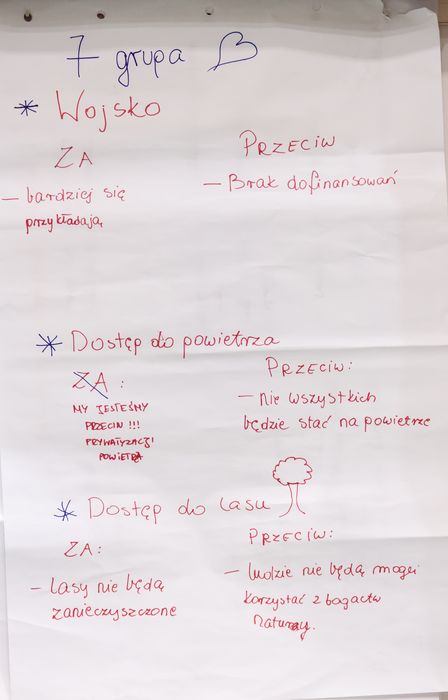 7 grupa
* Wojsko
ZA
- bardziej się
przykładają
PRZECIW
- Brak dofinansowań
* Dostęp do powietrza
ZA:
MY JESTEŚMY
PRZECIW !!!
PRYWATYZACJI
POWIETRZA
PRZECIW:
- nie wszystkich
będzie stać na powietrze
* Dostęp do lasu
ZA:
- lasy nie będą
zanieczyszczone
PRZECIW:
- ludzie nie będą mogli
korzystać z bogactw
natury.